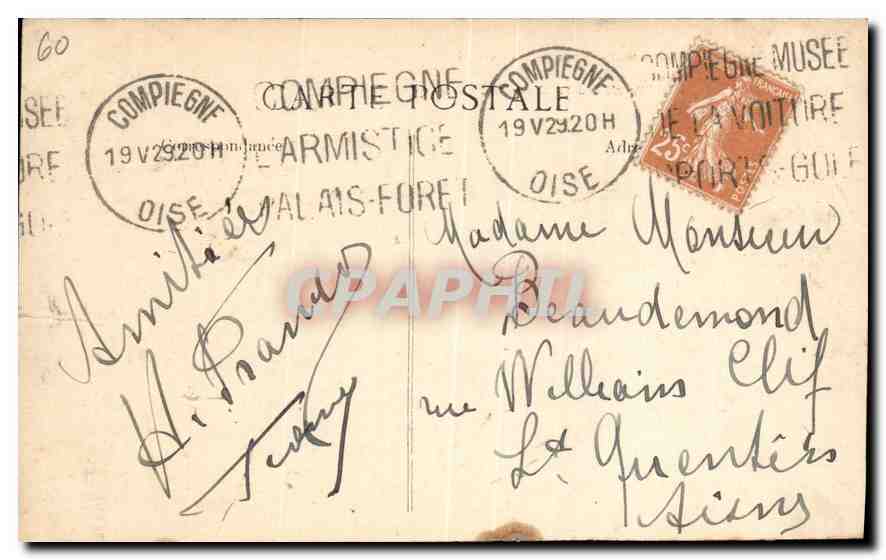 60
COMPIEGNE
19 V 29. 20 H
OISE
COMPIEGNE
L'ARMISTICE
PALAIS-FORET
COMPIEGNE
19 V 29. 20 H
OISE
COMPIEGNE MUSEE
DE LA VOITURE
SPORTS-GOLF
SEE
URE
GOL
CARTE POSTALE
Correspondance
Adre
FRANCAISE
25c
POSTES
CPAPHIL
Amitiés
H.
Madame Monsieur
Beaudemond
rue Williams Clif
St Quentins
Aisne